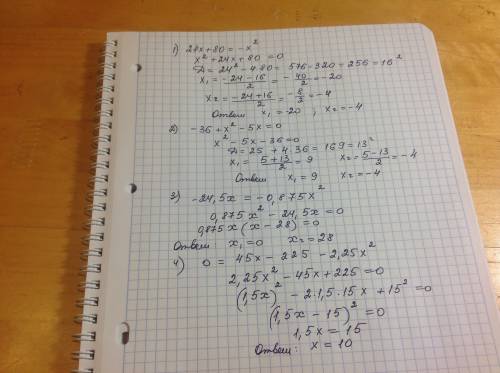 1) 24x+80 = -x²
x²+24x+80=0
D= 24²-4·80= 576-320=256=16²
x₁ = (-24-16)/2 = -40/2 = -20
x₂ = (-24+16)/2 = -8/2 = -4
Ответ x₁=-20, x₂=-4
2) -36+x²-5x=0
x²-5x-36=0
D=25+4·36=169=13²
x₁= (5+13)/2 = 9 x₂= (5-13)/2 = -4
Ответ x₁=9 x₂=-4
3) -24,5x = -0,875x²
0,875x² - 24,5x=0
0,875x(x-28)=0
Ответ x₁=0 x₂=28
4) 0 = 45x-225-2,25x²
2,25x²-45x+225=0
(1,5x)² - 2·1,5·15x+15²=0
(1,5x-15)²=0
1,5x=15
Ответ: x=10